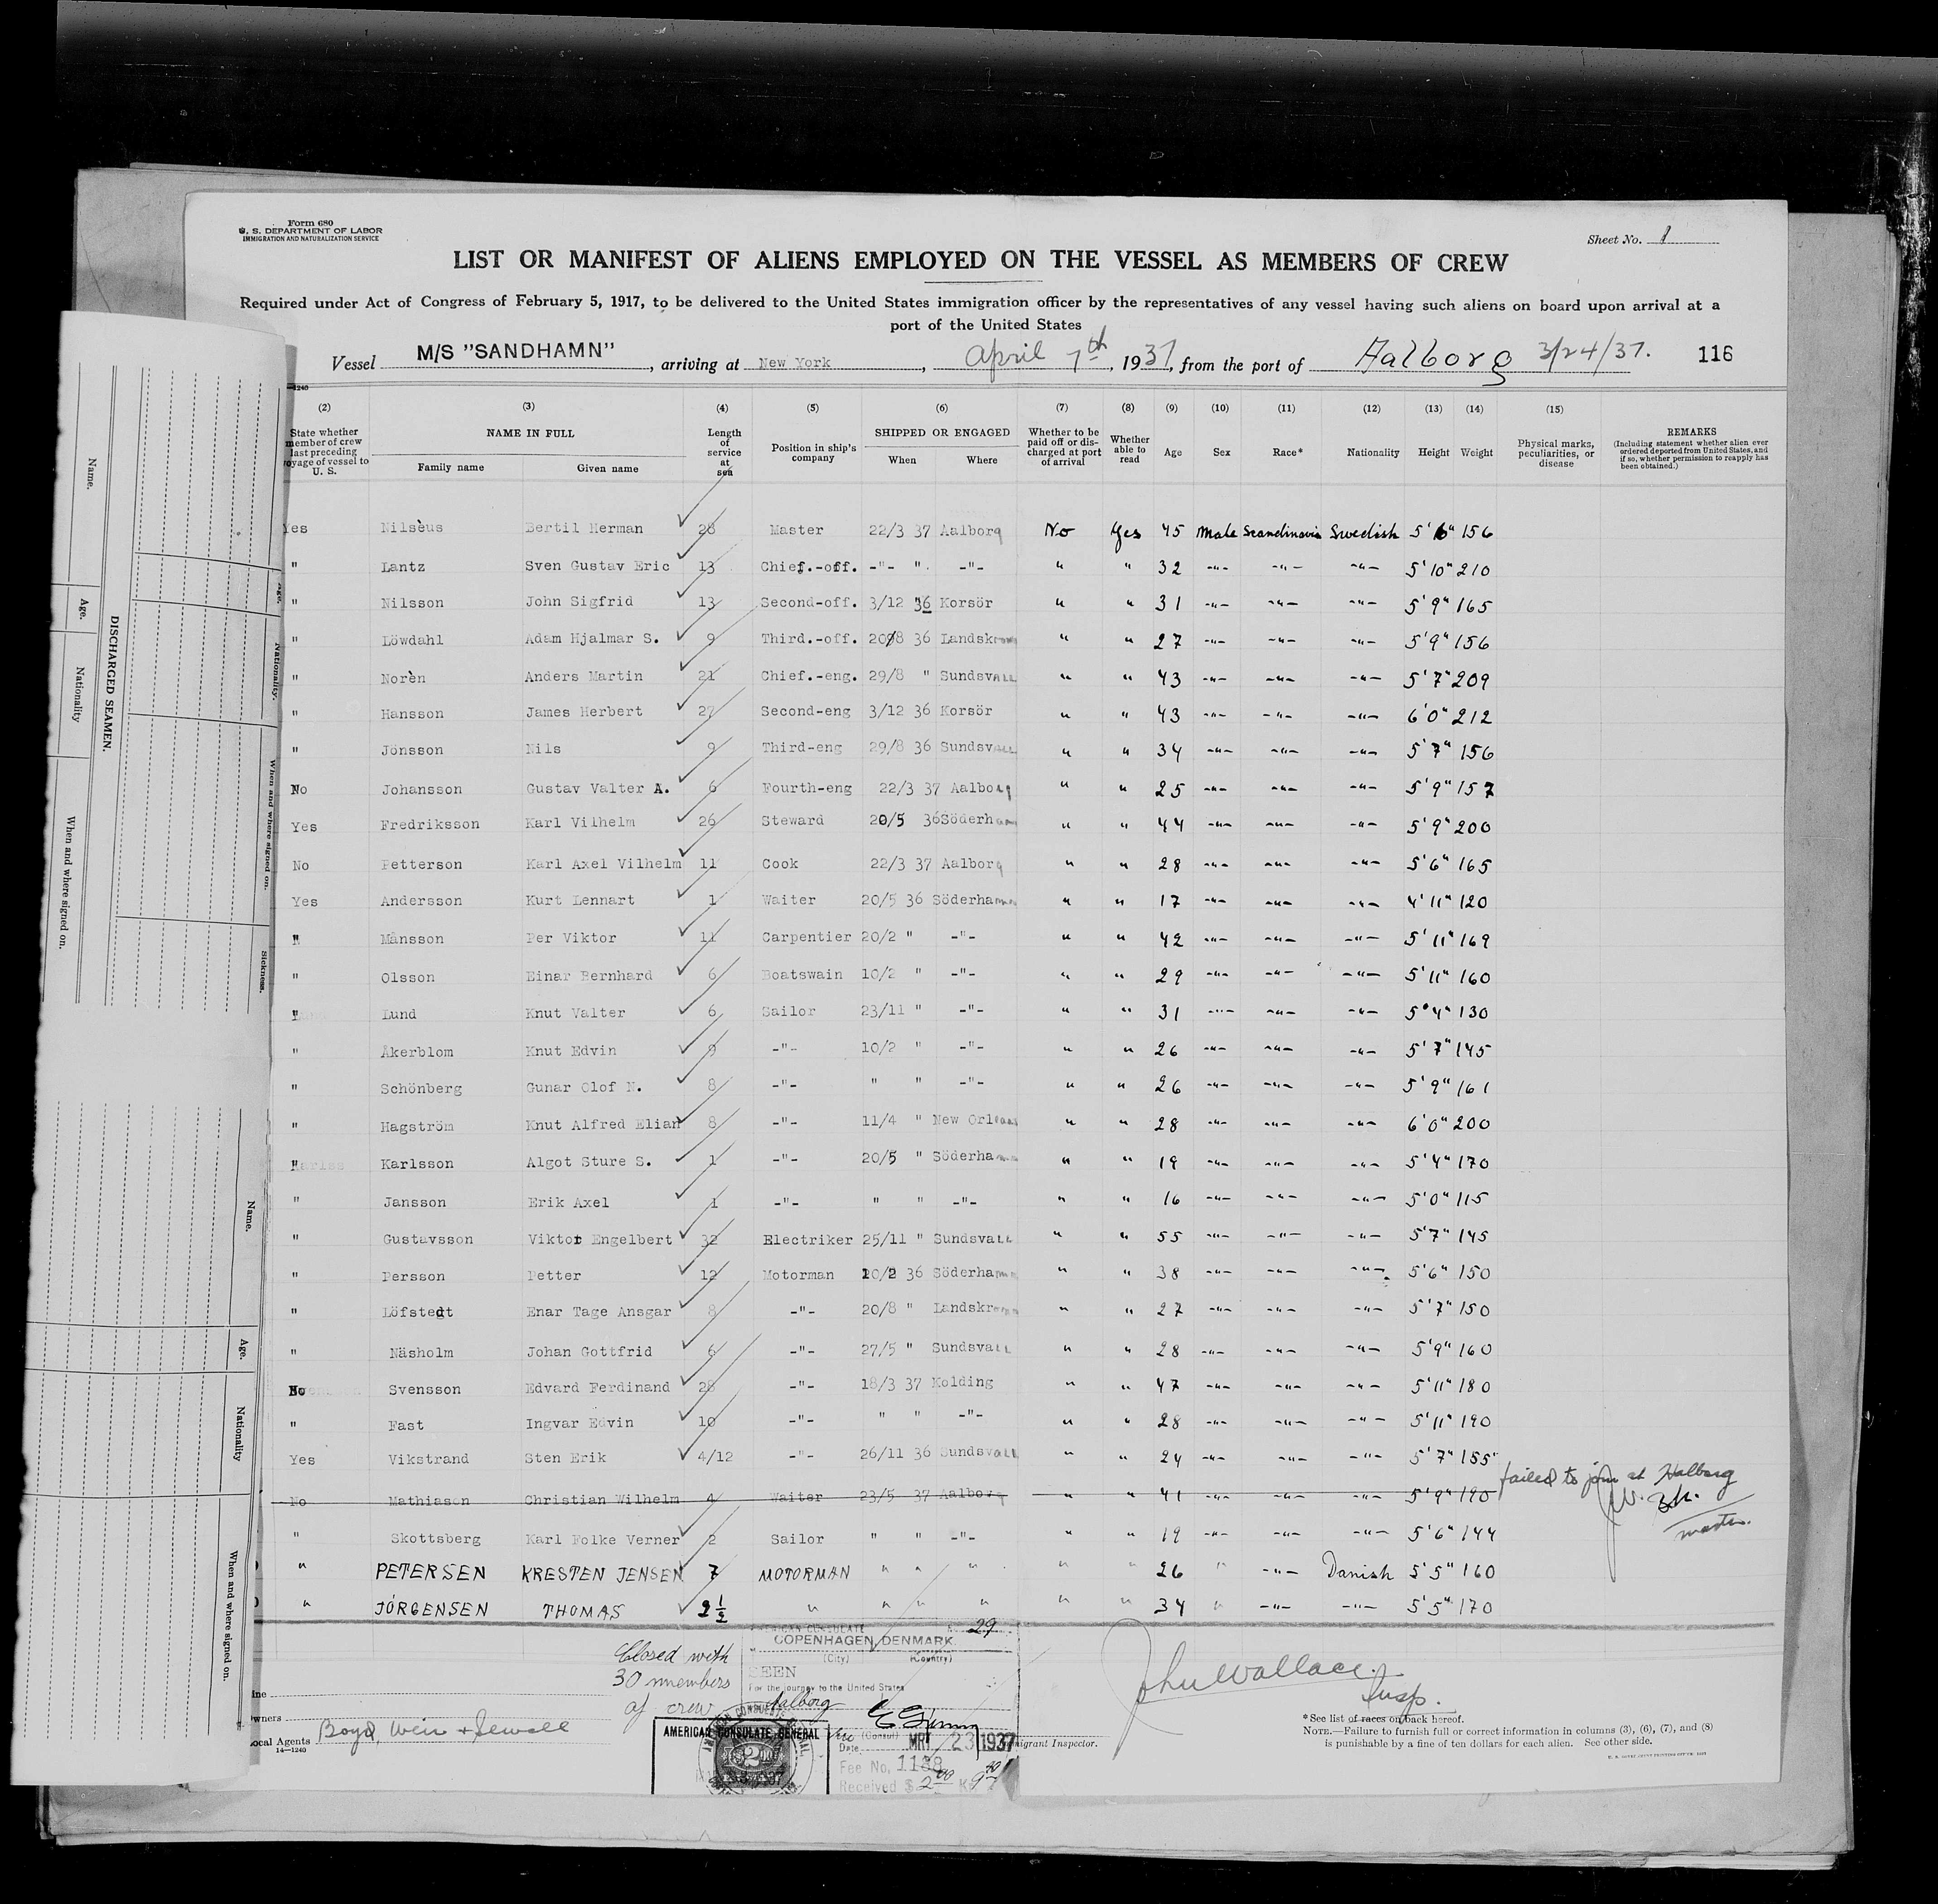 Form 680
U. S. DEPARTMENT OF LABOR
IMMIGRATION AND NATURALIZATION SERVICE
Sheet No. 1
LIST OR MANIFEST OF ALIENS EMPLOYED ON THE VESSEL AS MEMBERS OF CREW
Required under Act of Congress of February 5, 1917, to be delivered to the United States immigration officer by the representatives of any vessel having such aliens on board upon arrival at a
port of the United States
Vessel M/S "SANDHAMN", arriving at New York, April 7th, 1937, from the port of Aalborg 3/24/37. 116
(2) (3) (4) (5) (6) (7) (8) (9) (10) (11) (12) (13) (14) (15)
State whether member of crew last preceding voyage of vessel to U. S. NAME IN FULL Family name Given name Length of service at sea Position in ship's company SHIPPED OR ENGAGED When Where Whether to be paid off or discharged at port of arrival Whether able to read Age Sex Race* Nationality Height Weight Physical marks, peculiarities, or disease REMARKS (Including statement whether alien ever ordered deported from United States, and if so, whether permission to reapply has been obtained.)
Yes Nilsèus Bertil Herman 28 Master 22/3 37 Aalborg No Yes 45 Male Scandinavia Swedish 5'6" 156
" Lantz Sven Gustav Eric 13 Chief.-off. -"- " -"- " " 32 -"- -"- -"- 5'10" 210
" Nilsson John Sigfrid 13 Second-off. 3/12 36 Korsör " " 31 -"- -"- -"- 5'9" 165
" Löwdahl Adam Hjalmar S. 9 Third.-off. 20/8 36 Landskrona " " 27 -"- -"- -"- 5'9" 156
" Norèn Anders Martin 21 Chief.-eng. 29/8 " Sundsvall " " 43 -"- -"- -"- 5'7" 209
" Hansson James Herbert 27 Second-eng 3/12 36 Korsör " " 43 -"- -"- -"- 6'0" 212
" Jönsson Nils 9 Third-eng 29/8 36 Sundsvall " " 34 -"- -"- -"- 5'7" 156
No Johansson Gustav Valter A. 6 Fourth-eng 22/3 37 Aalborg " " 25 -"- -"- -"- 5'9" 157
Yes Fredriksson Karl Vilhelm 26 Steward 20/5 36 Söderhamn " " 44 -"- -"- -"- 5'9" 200
No Petterson Karl Axel Vilhelm 11 Cook 22/3 37 Aalborg " " 28 -"- -"- -"- 5'6" 165
Yes Andersson Kurt Lennart 1 Waiter 20/5 36 Söderhamn " " 17 -"- -"- -"- 4'11" 120
" Månsson Per Viktor 11 Carpentier 20/2 " -"- " " 42 -"- -"- -"- 5'11" 169
" Olsson Einar Bernhard 6 Boatswain 10/2 " -"- " " 29 -"- -"- -"- 5'11" 160
" Lund Knut Valter 6 Sailor 23/11 " -"- " " 31 -"- -"- -"- 5'4" 130
" Åkerblom Knut Edvin 9 -"- 10/2 " -"- " " 26 -"- -"- -"- 5'7" 145
" Schönberg Gunar Olof N. 8 -"- " " -"- " " 26 -"- -"- -"- 5'9" 161
" Hagström Knut Alfred Elian 8 -"- 11/4 " New Orleans " " 28 -"- -"- -"- 6'0" 200
" Karlsson Algot Sture S. 1 -"- 20/5 " Söderhamn " " 19 -"- -"- -"- 5'4" 170
" Jansson Erik Axel 1 -"- " " -"- " " 16 -"- -"- -"- 5'0" 115
" Gustavsson Viktor Engelbert 32 Electriker 25/11 " Sundsvall " " 55 -"- -"- -"- 5'7" 145
" Persson Petter 12 Motorman 20/2 36 Söderhamn " " 38 -"- -"- -"- 5'6" 150
" Löfstedt Enar Tage Ansgar 8 -"- 20/8 " Landskrona " " 27 -"- -"- -"- 5'7" 150
" Näsholm Johan Gottfrid 6 -"- 27/5 " Sundsvall " " 28 -"- -"- -"- 5'9" 160
No Svensson Edvard Ferdinand 28 -"- 18/3 37 Kolding " " 47 -"- -"- -"- 5'11" 180
" Fast Ingvar Edvin 10 -"- " " -"- " " 28 -"- -"- -"- 5'11" 190
Yes Vikstrand Sten Erik 4/12 -"- 26/11 36 Sundsvall " " 24 -"- -"- -"- 5'7" 155
No Mathiason Christian Wilhelm 4 Waiter 23/5 37 Aalborg " " 41 -"- -"- -"- 5'9" 190 failed to join at Aalborg
master.
" Skottsberg Karl Folke Verner 2 Sailor " " -"- " " 19 -"- -"- -"- 5'6" 144
" PETERSEN KRESTEN JENSEN 7 MOTORMAN " " " " " 26 " -"- Danish 5'5" 160
" JÖRGENSEN THOMAS 2 1/2 " " " " " " 34 " -"- -"- 5'5" 170
Closed with
30 members
of crew
AMERICAN CONSULATE No. 29
COPENHAGEN, DENMARK
(City) (Country)
SEEN
For the journey to the United States
Aalborg
(Consul)
Date MR 23 1937
Fee No. 1188
Received $2.00
AMERICAN CONSULATE GENERAL
John Wallace
Insp.
Immigrant Inspector.
Line
Owners
Local Agents Boyd, Weir & Sewell
14—1240
*See list of races on back hereof.
NOTE.—Failure to furnish full or correct information in columns (3), (6), (7), and (8)
is punishable by a fine of ten dollars for each alien. See other side.
DISCHARGED SEAMEN.
Name.
Age.
Nationality
When and where signed on.
Age.
Nationality.
When and where signed on.
Sickness.
Name.
Age.
Nationality
When and where signed on.